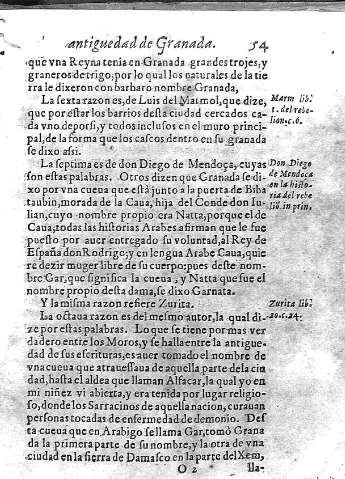 antiguedad de Granada. 54
que vna Reyna tenia en Granada grandes trojes, y
graneros de trigo, por lo qual los naturales de la tie
rra le dixeron con barbaro nombre Granada,
La sexta razon es, de Luis del Marmol, que dize,
que por estar los barrios desta ciudad cercados ca
da vno de por si, y todos inclusos en el muro princi-
pal, de la forma que los cascos dentro en su granada
se dixo assi.
Marm lib.
1. del rebe-
lion. c. 6.
La septima es de don Diego de Mendoça, cuyas
son estas palabras. Otros dizen que Granada se di-
xo por vna cueua que està junto a la puerta de Biba
taubin, morada de la Caua, hija del Conde don Iu-
lian, cuyo nombre propio era Natta, porque el de
Caua, todas las historias Arabes afirman que le fue
puesto por auer entregado su voluntad, al Rey de
España don Rodrigo, y en lengua Arabe Caua, quie
re dezir muger libre de su cuerpo; pues deste nom-
bre Gar, que significa la cueua, y Natta que fue el
nombre propio desta dama, se dixo Garnata.
Don Diego
de Mendoca
en la histo-
ria del rebe
liõ in prin.
Y la misma razon refiere Zurita.
Zurita lib.
20. c. 24.
La octaua razon es del mesmo autor, la qual di-
ze por estas palabras. Lo que se tiene por mas ver
dadero entre los Moros, y se halla entre la antigue-
dad de sus escrituras, es auer tomado el nombre de
vna cueua que atrauessaua de aquella parte de la ciu
dad, hasta el aldea que llaman Alfacar, la qual yo en
mi niñez vi abierta, y era tenida por lugar religio-
so, donde los Sarracinos de aquella nacion, curauan
personas tocadas de enfermedad de demonio. Des
ta cueua que en Arabigo se llama Gar, tomò Grana
da la primera parte de su nombre, y la otra de vna
ciudad en la sierra de Damasco en la parte del Xem,
O 2 lla-